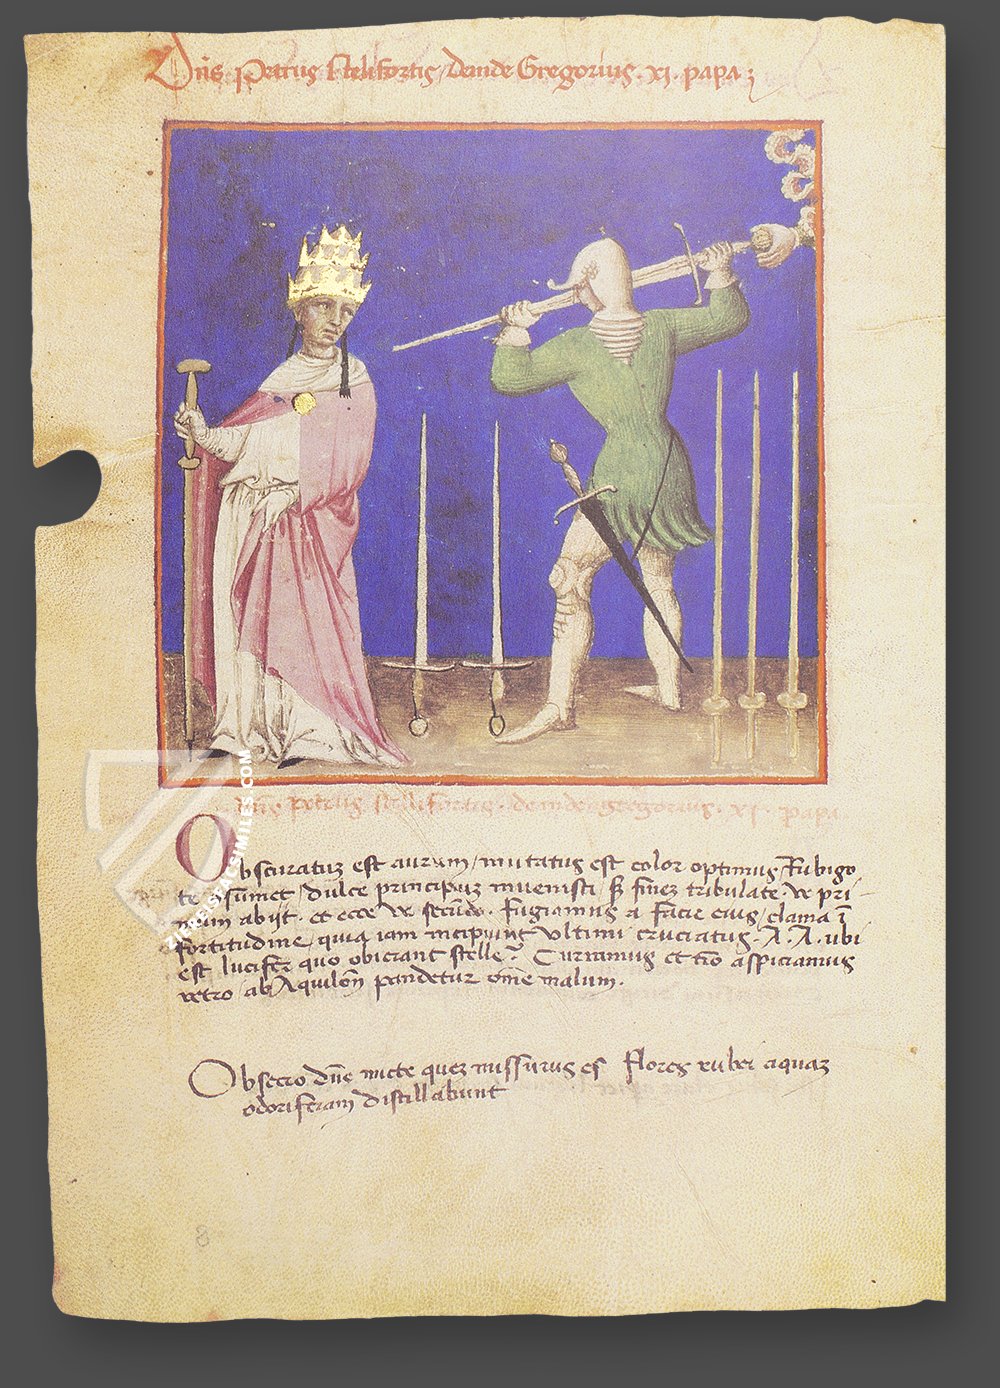 Dn̄s Petrus Stelifortis, deinde Gregorius .xi. papa ;
Dn̄s Petrus stellifortis . deinde gregorius . xi . papa .
Obscuratuʒ est aurum / mutatus est color optimus / Rubigo
te ɔ̄sumet / dulce principiuʒ inuenisti / sʒ fineʒ tribulate . ve pri-
mum abijt . et ecce ve secūdo . Fugiamus a facie eius / clama ī
fortitudine / quia iam incipiunt vltimi cruciatus . A . A . ubi
est lucifer quo obierant stelle ? Curramus et nō aspiciamus
retro / ab Aquilōn pandetur om̄e malum .
Obsecro dn̄e micte queʒ missurus es Flores rubei aquaʒ
odoriferam distillabunt
8
FACSIMILES.COM